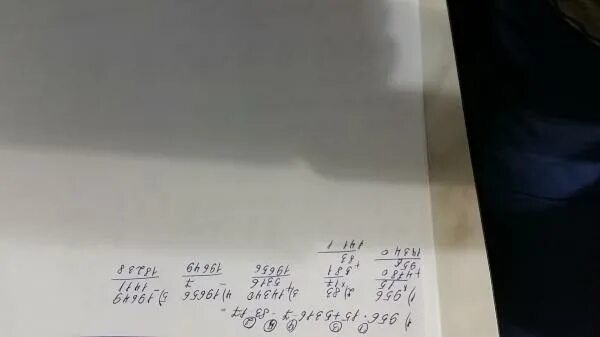 1) 956·15+5316-7-83·17=
1) 956 2) 83 3) 14340 4) 19656 5) 19649
x 15 x 17 + 5316 - 7 - 1411
+ 4780 + 581 19656 19649 18238
956 83
14340 1411